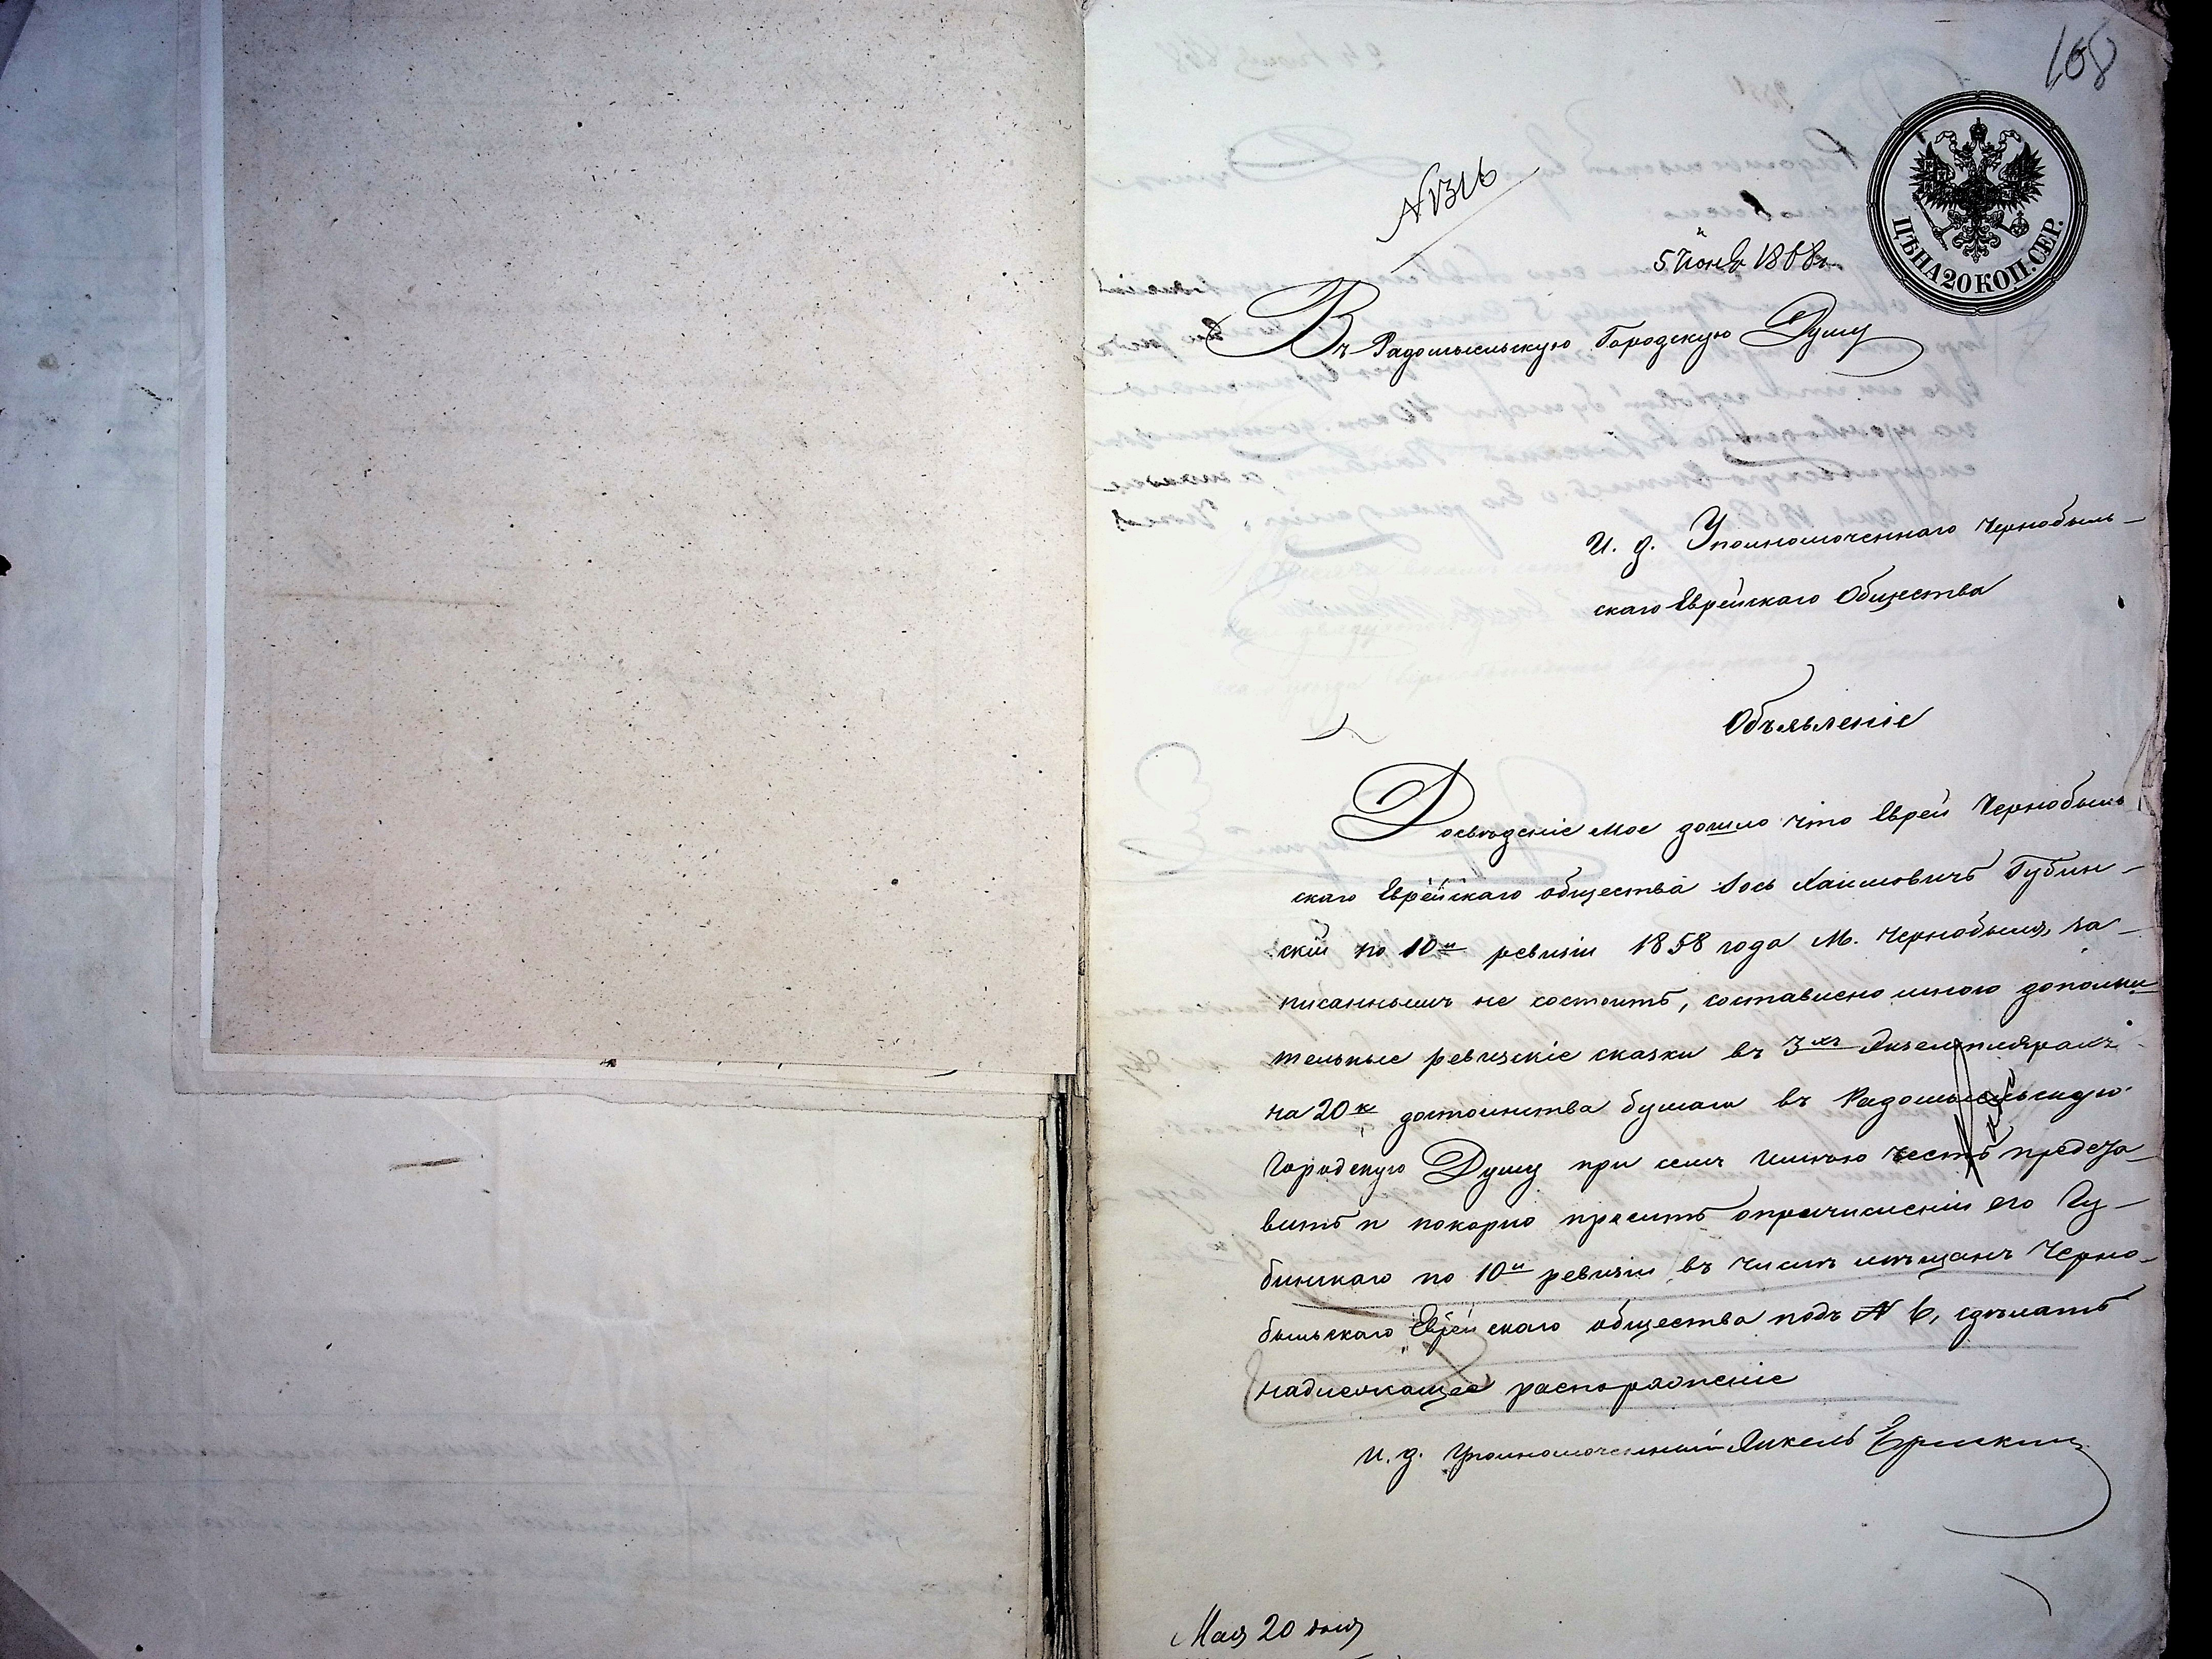 108
ЦѢНА 20 КОП. СЕР.
N 1316
5 Июня 1868 г.
Въ Радомысльскую Городскую Думу
И. д. Уполномоченнаго Чернобыль-
скаго Еврейскаго Общества
Объявленіе
Досвѣденіе мое дошло что Еврей Чернобыль
скаго Еврейскаго общества Іось Хаимовичъ Губин-
скій по 10й ревизіи 1858 года М. Чернобыля за-
писаннымъ не состоитъ, составлено мною дополни
тельные ревизскіе сказки въ 3хъ Экземплярахъ
на 20 к достоинства бумаги въ Радомысльскую
Городскую Думу при семъ имѣю честь предста-
вить и покорно просить опричисленіи его Гу-
бинскаго по 10й ревизіи въ числѣ мѣщанъ Черно-
быльскаго Еврейскаго общества подъ N 6, сдѣлать
надлежащее распоряженіе
И. д. Уполномоченный Янкель
Мая 20 дня